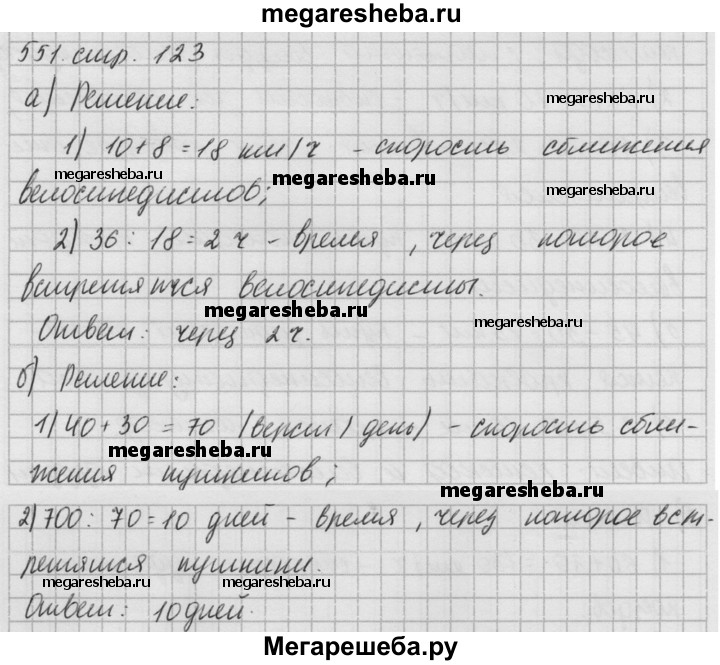 megaresheba.ru
551. стр. 123
а) Решение:
megaresheba.ru
1) 10+8 = 18 км/ч - скорость сближения
megaresheba.ru megaresheba.ru megaresheba.ru
велосипедистов;
2) 36 : 18 = 2 ч - время, через которое
встретятся велосипедисты.
megaresheba.ru megaresheba.ru
Ответ: через 2 ч.
б) Решение:
1) 40 + 30 = 70 (верст / день) - скорость сбли-
megaresheba.ru
жения путников;
megaresheba.ru
2) 700 : 70 = 10 дней - время, через которое вст-
ретятся путники.
megaresheba.ru megaresheba.ru
Ответ: 10 дней.
Мегарешеба.ру